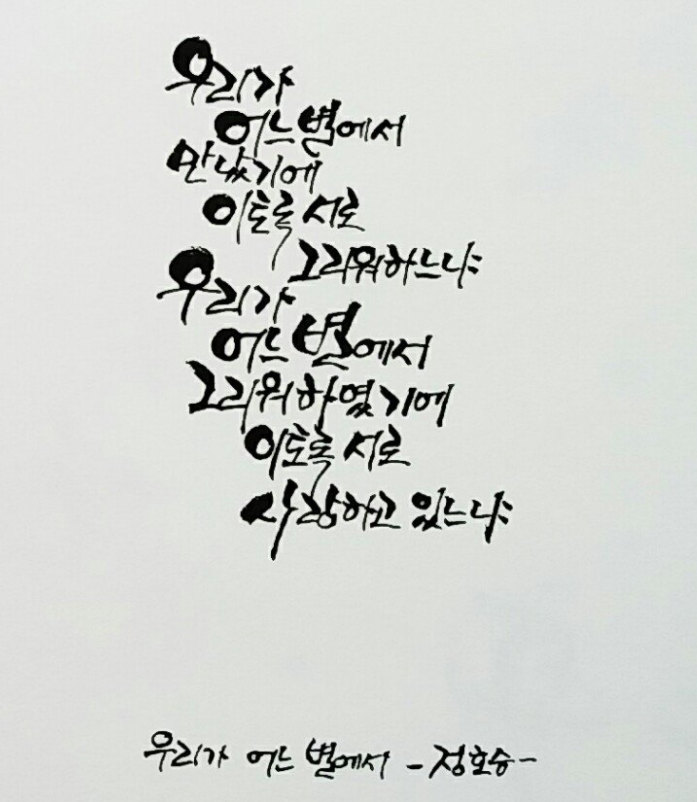 우리가
어느 별에서
만났기에
이토록 서로
그리워하느냐
우리가
어느 별에서
그리워하였기에
이토록 서로
사랑하고 있느냐
우리가 어느 별에서 - 정호승 -